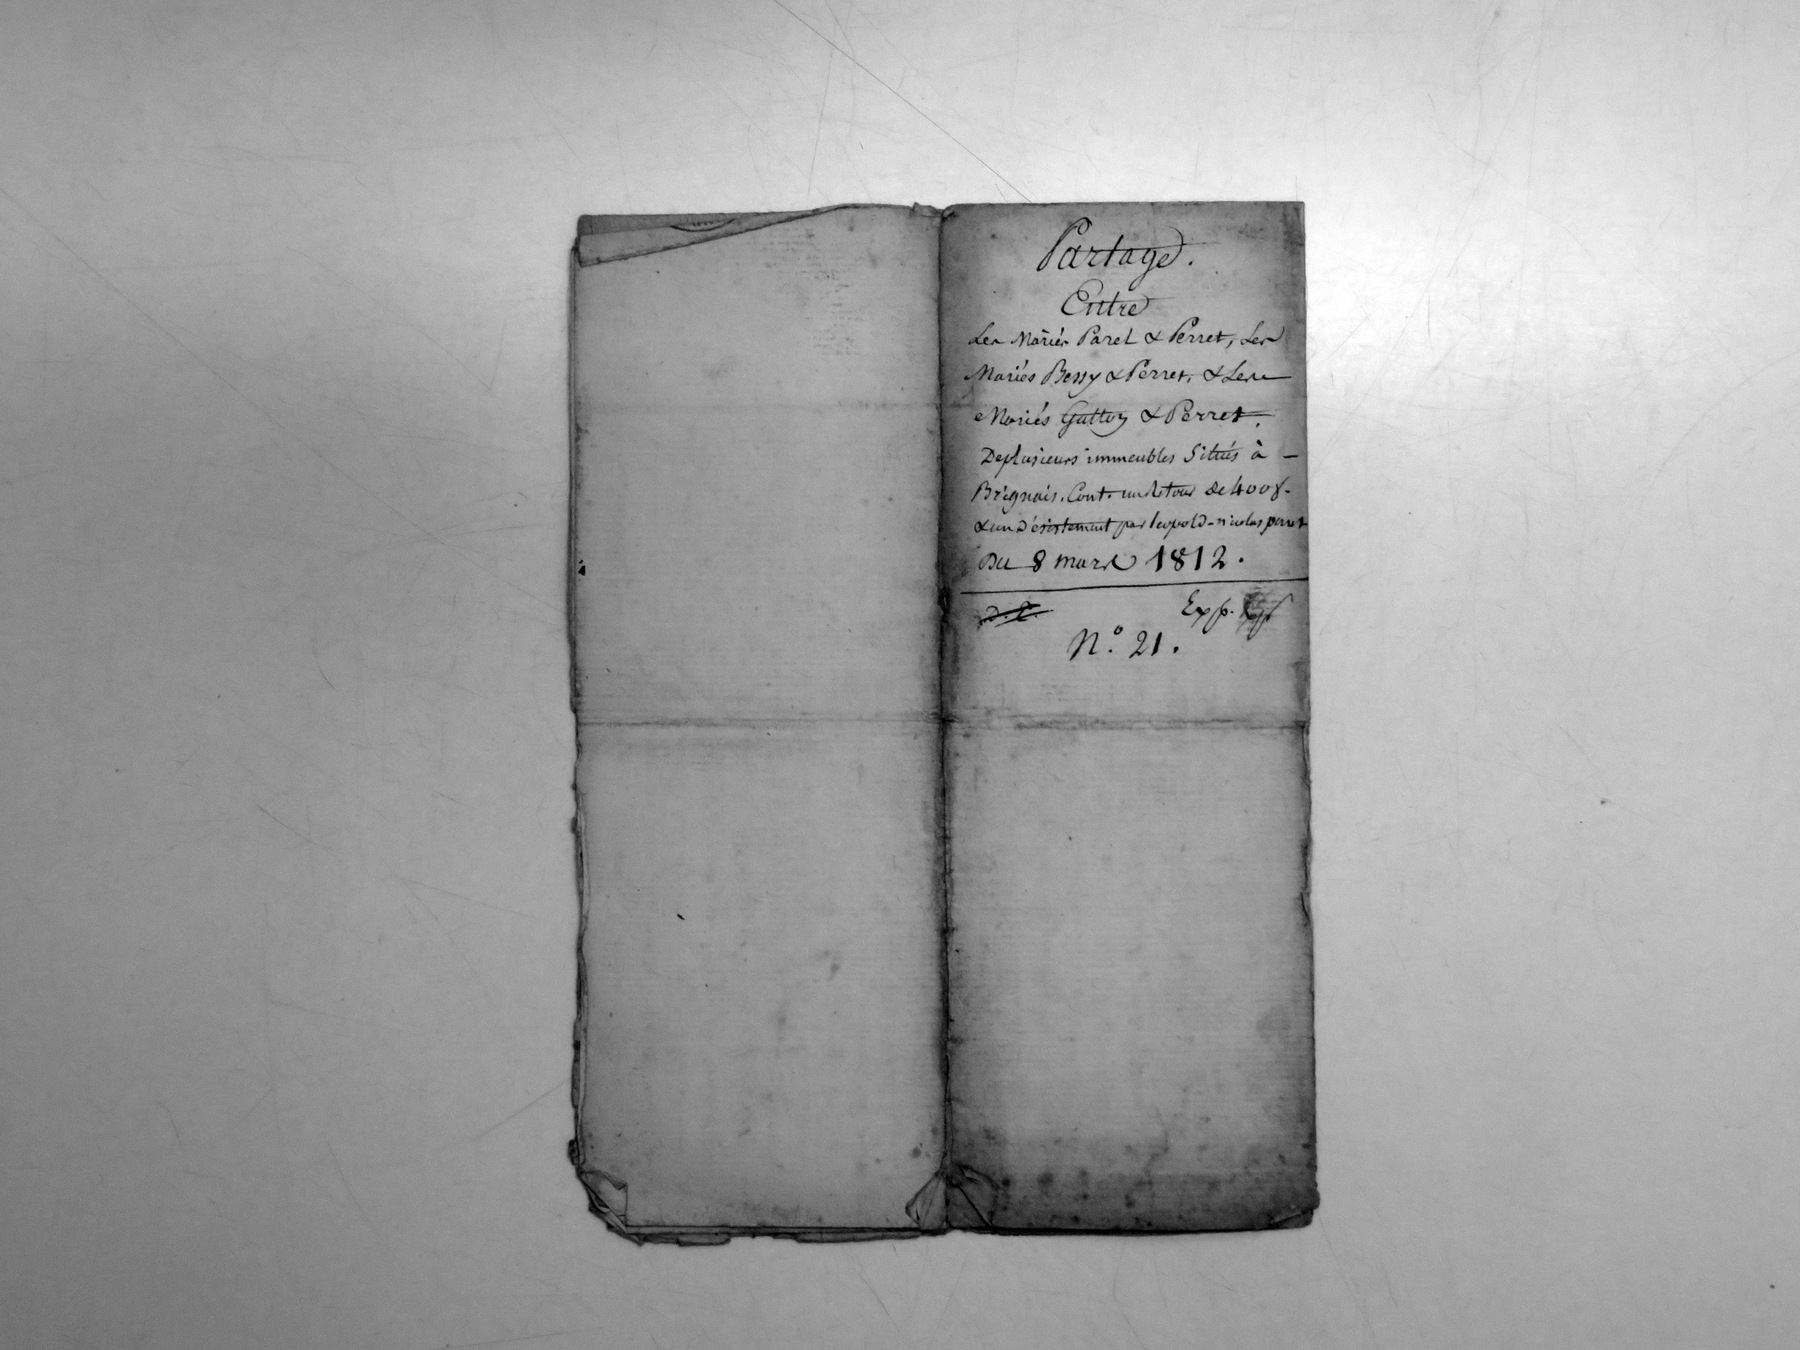 Partage.
Entre
Les Mariés Parel & Perret, Les
Mariés Bessy & Perret, & Les
Mariés Gutton & Perret,
De plusieurs immeubles Situés à -
Brignais. Cont. un Retour de 400f.
& un Désistement par leopold-nicolas perret
Du 8 mars 1812.
Exp.
N.º 21.